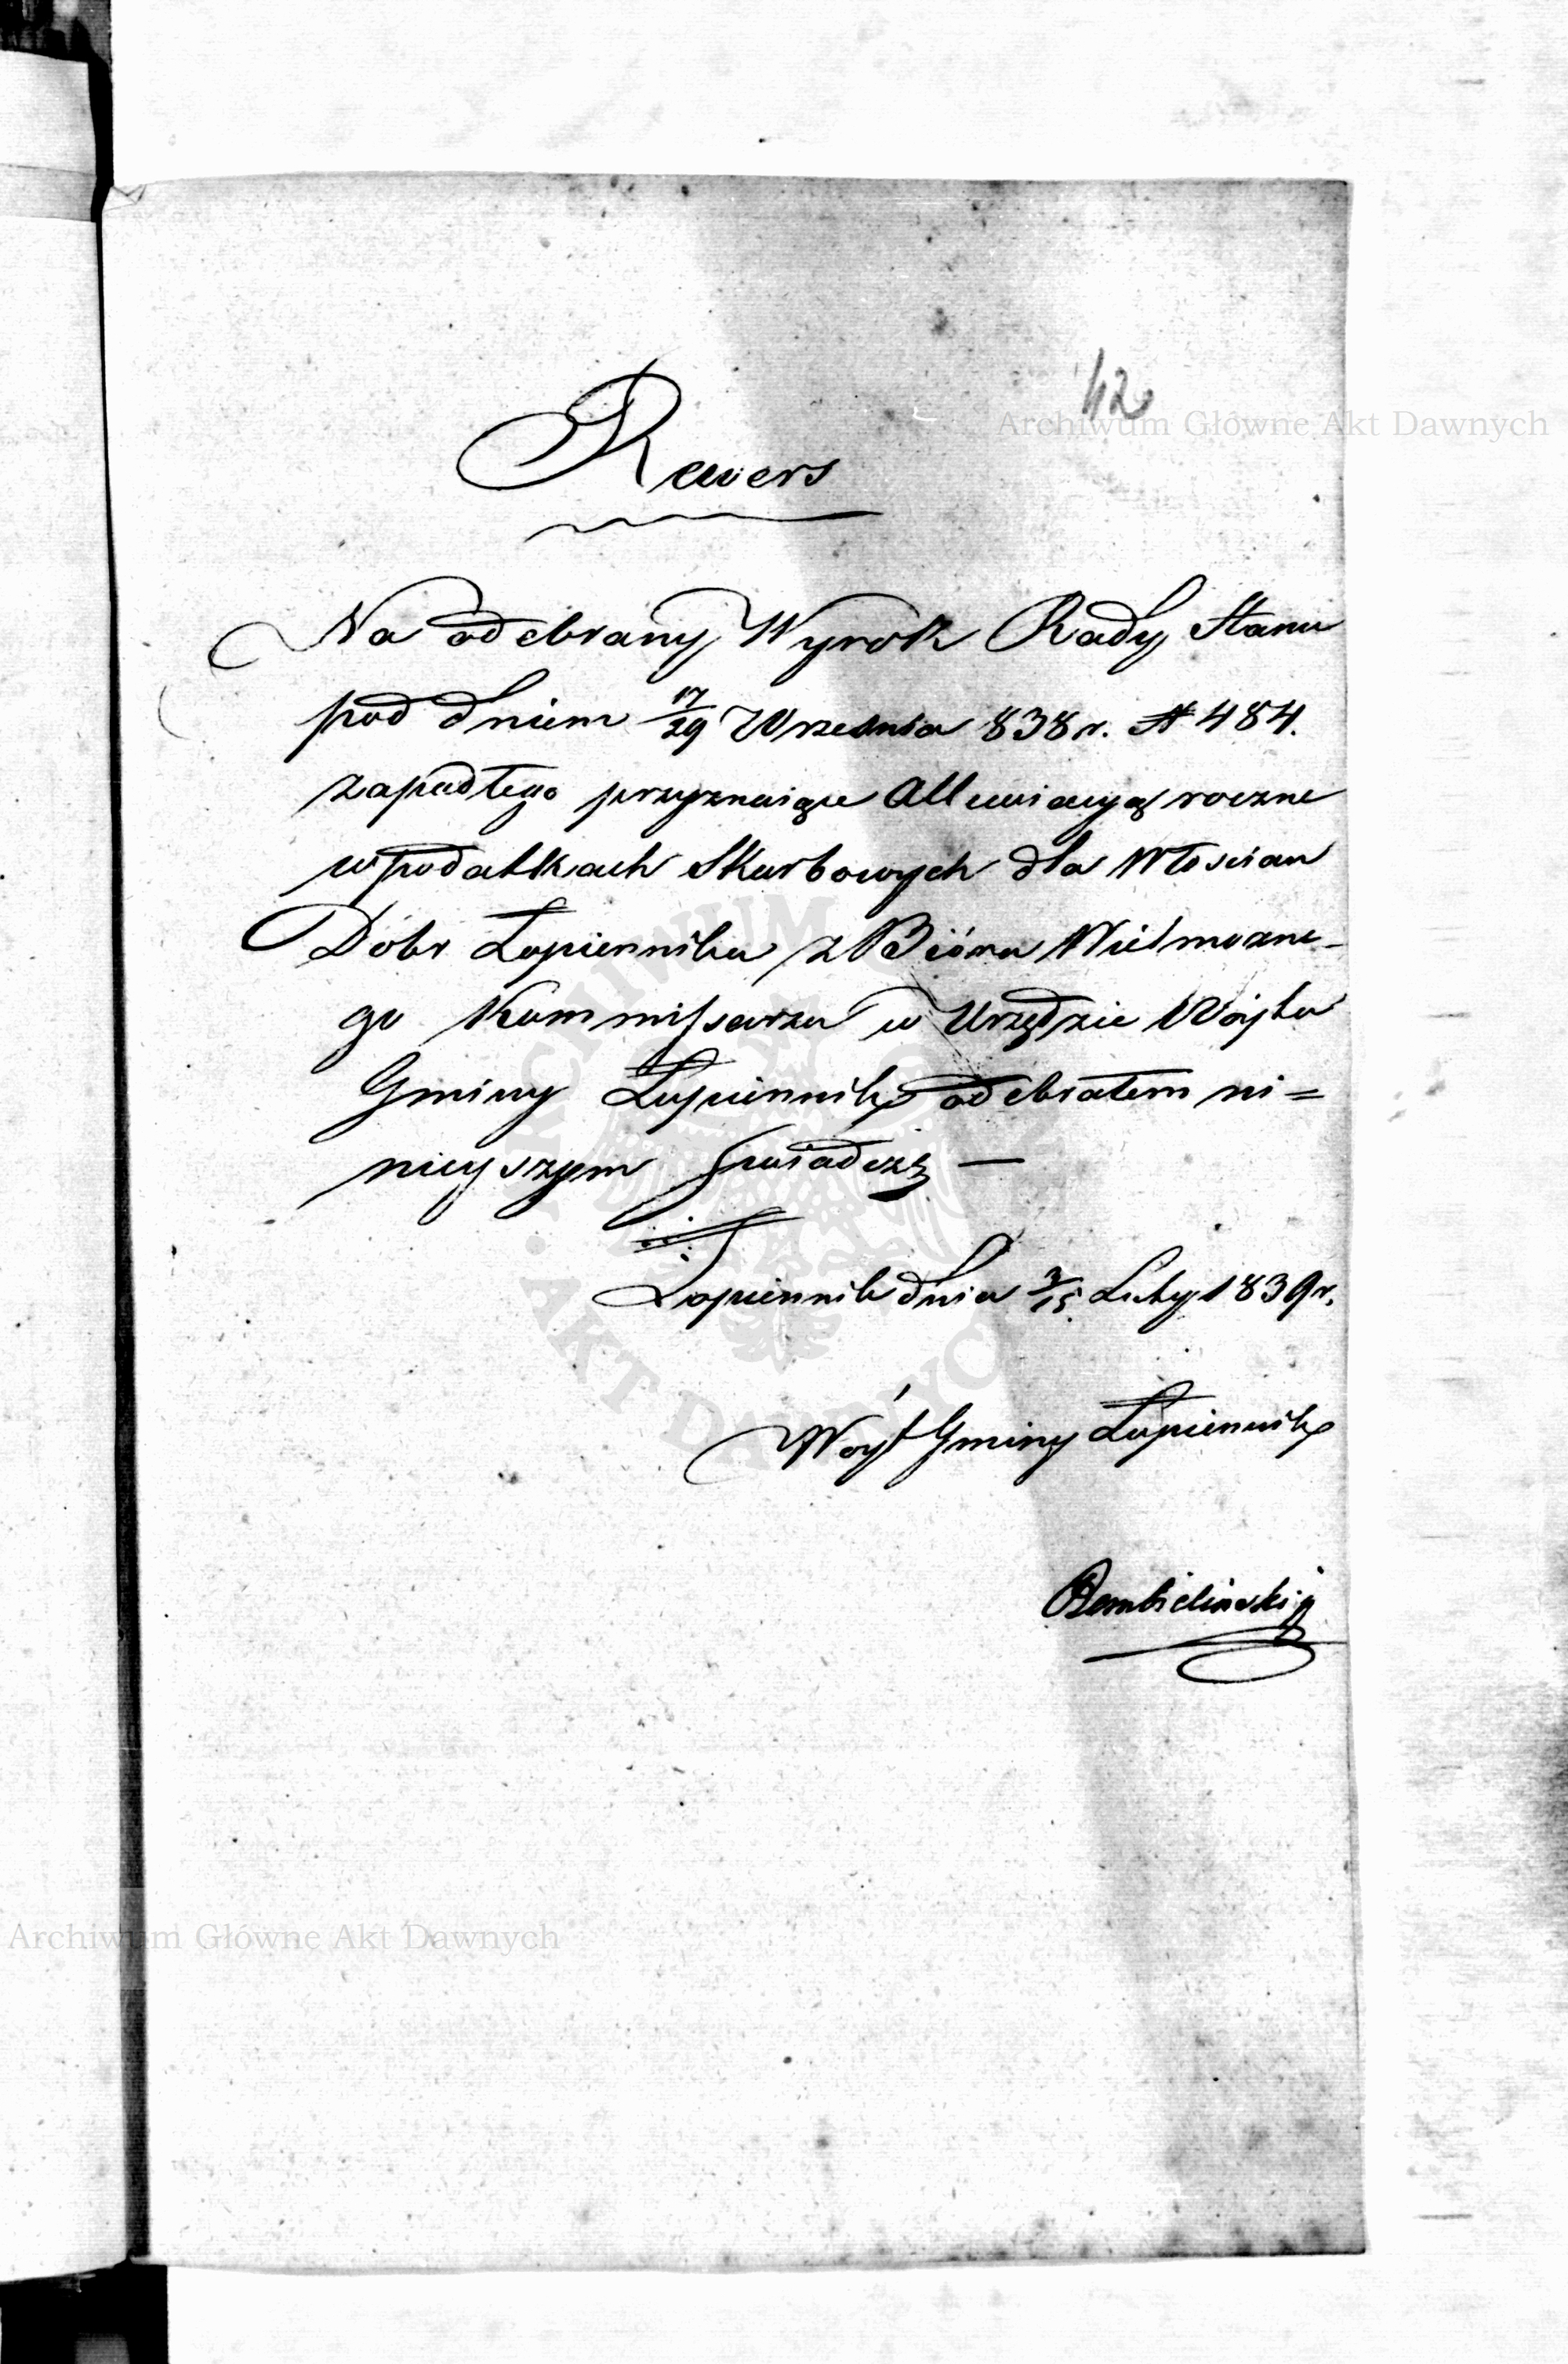 42
Rewers
Na odebrany Wyrok Rady Stanu
pod dniem 17/29 Wrzesnia 838 r. N 484.
zapadłego przyznaiące Allewiacyą roczne
w podatkach Skarbowych dla Włościan
Dobr Łopiennika z Bióra Wielmożne-
go Kommissarza w Urzędzie Wójta
Gminy Łopiennik odebrałem ni=
nieyszym Swiadczę —
Łopiennik dnia 3/15 Luty 1839 r.
Wóyt Gminy Łopiennik
Rembielinski
Archiwum Główne Akt Dawnych
ARCHIWUM GŁÓWNE · AKT DAWNYCH ·
Archiwum Główne Akt Dawnych